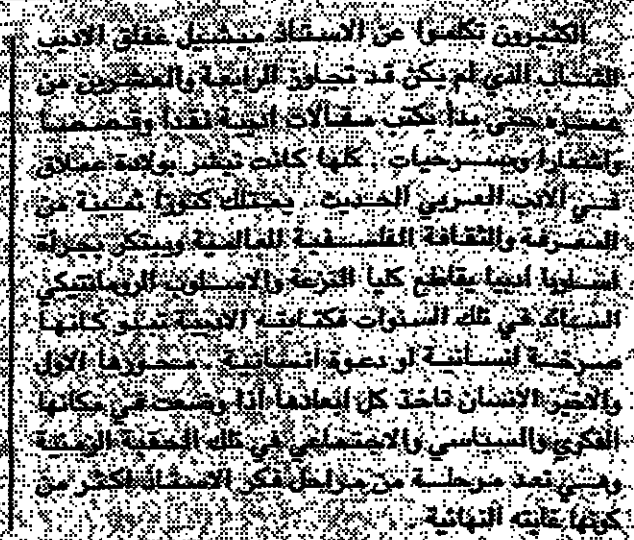 الكثيرون تكلموا عن الاستاذ ميشيل عفلق الاديب
الشاب الذي لم يكن قد تجاوز الرابعة والعشرين من
عمره حتى بدأ يكتب مقالات ادبية نقدا وقصصا
واشعارا ومسرحيات . كلها كانت تبشر بولادة عملاق
في الادب العربي الحديث . يمتلك كنوزا ثمينة من
المعرفة والثقافة الفلسفية العالمية ويبتكر بجرأة
اسلوبا ادبيا يقاطع كليا النزعة والاسلوب الرومانتيكي
السائد في تلك السنوات فكتاباته الادبية تبدو كانها
صرخة انسانية او دعوة انسانية . محورها الاول
والاخير الانسان تاخذ كل ابعادها اذا وضعت في مكانها
الفكري والسياسي والاجتماعي في تلك الحقبة الزمنية
وهي تعد مرحلة من مراحل فكر الاستاذ اكثر من
كونها غايته النهائية .